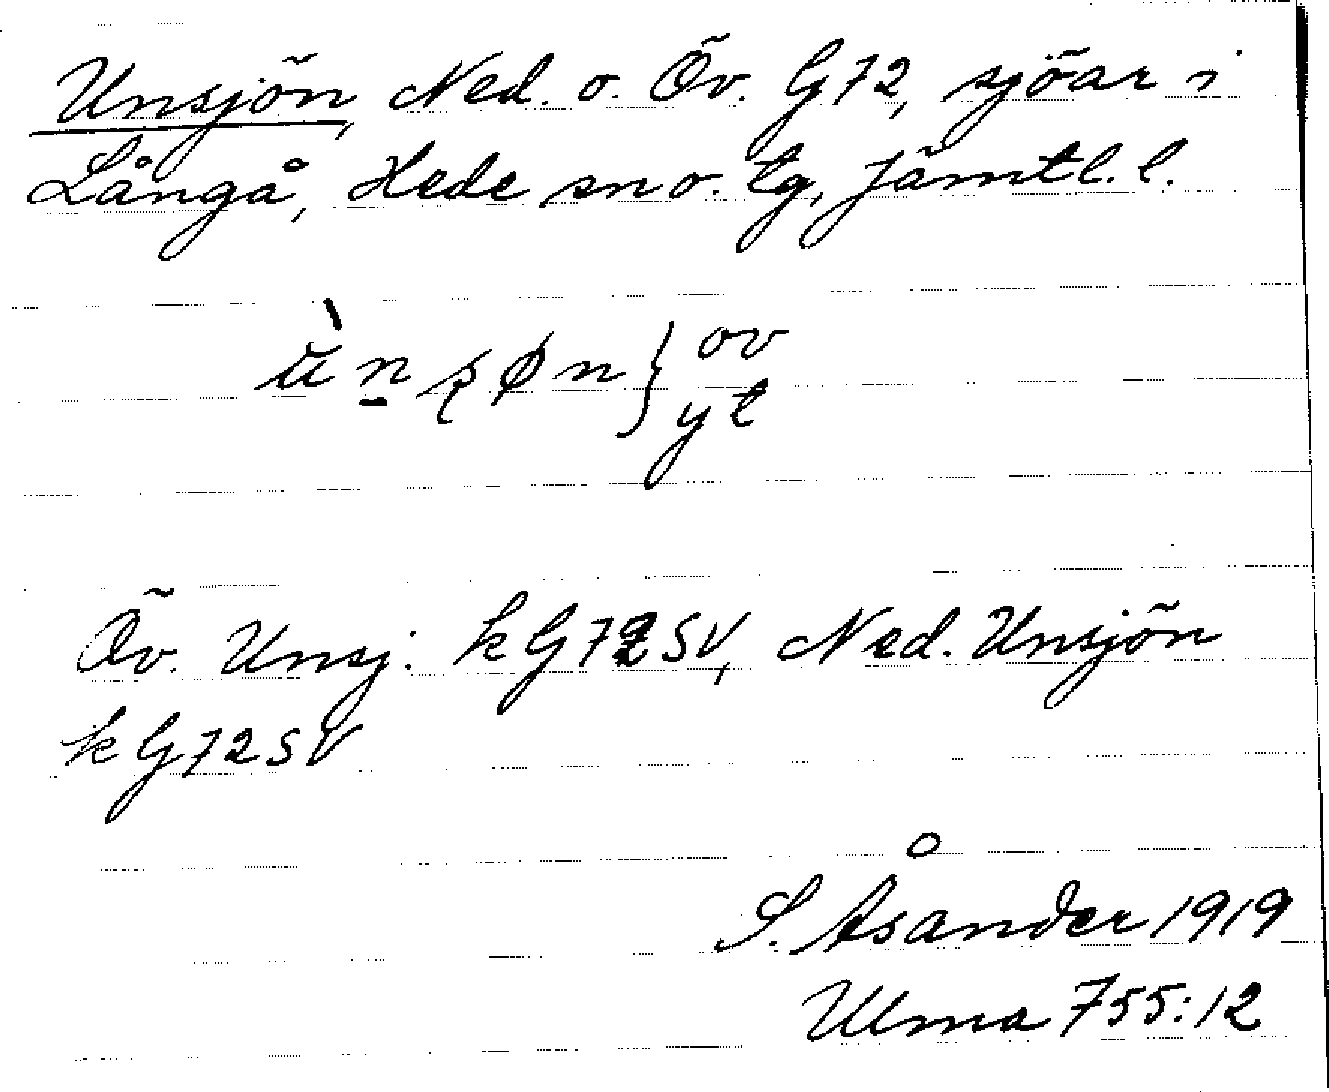 Unsjön, Ned. o. Öv. G72, sjöar i
Långå, Hede sn o. tg, Jämtl. l.
ov
yt
Öv. Unsj. kG72SV, Ned. Unsjön
kG72SV
S. Åsander 1919
Ulma 755:12